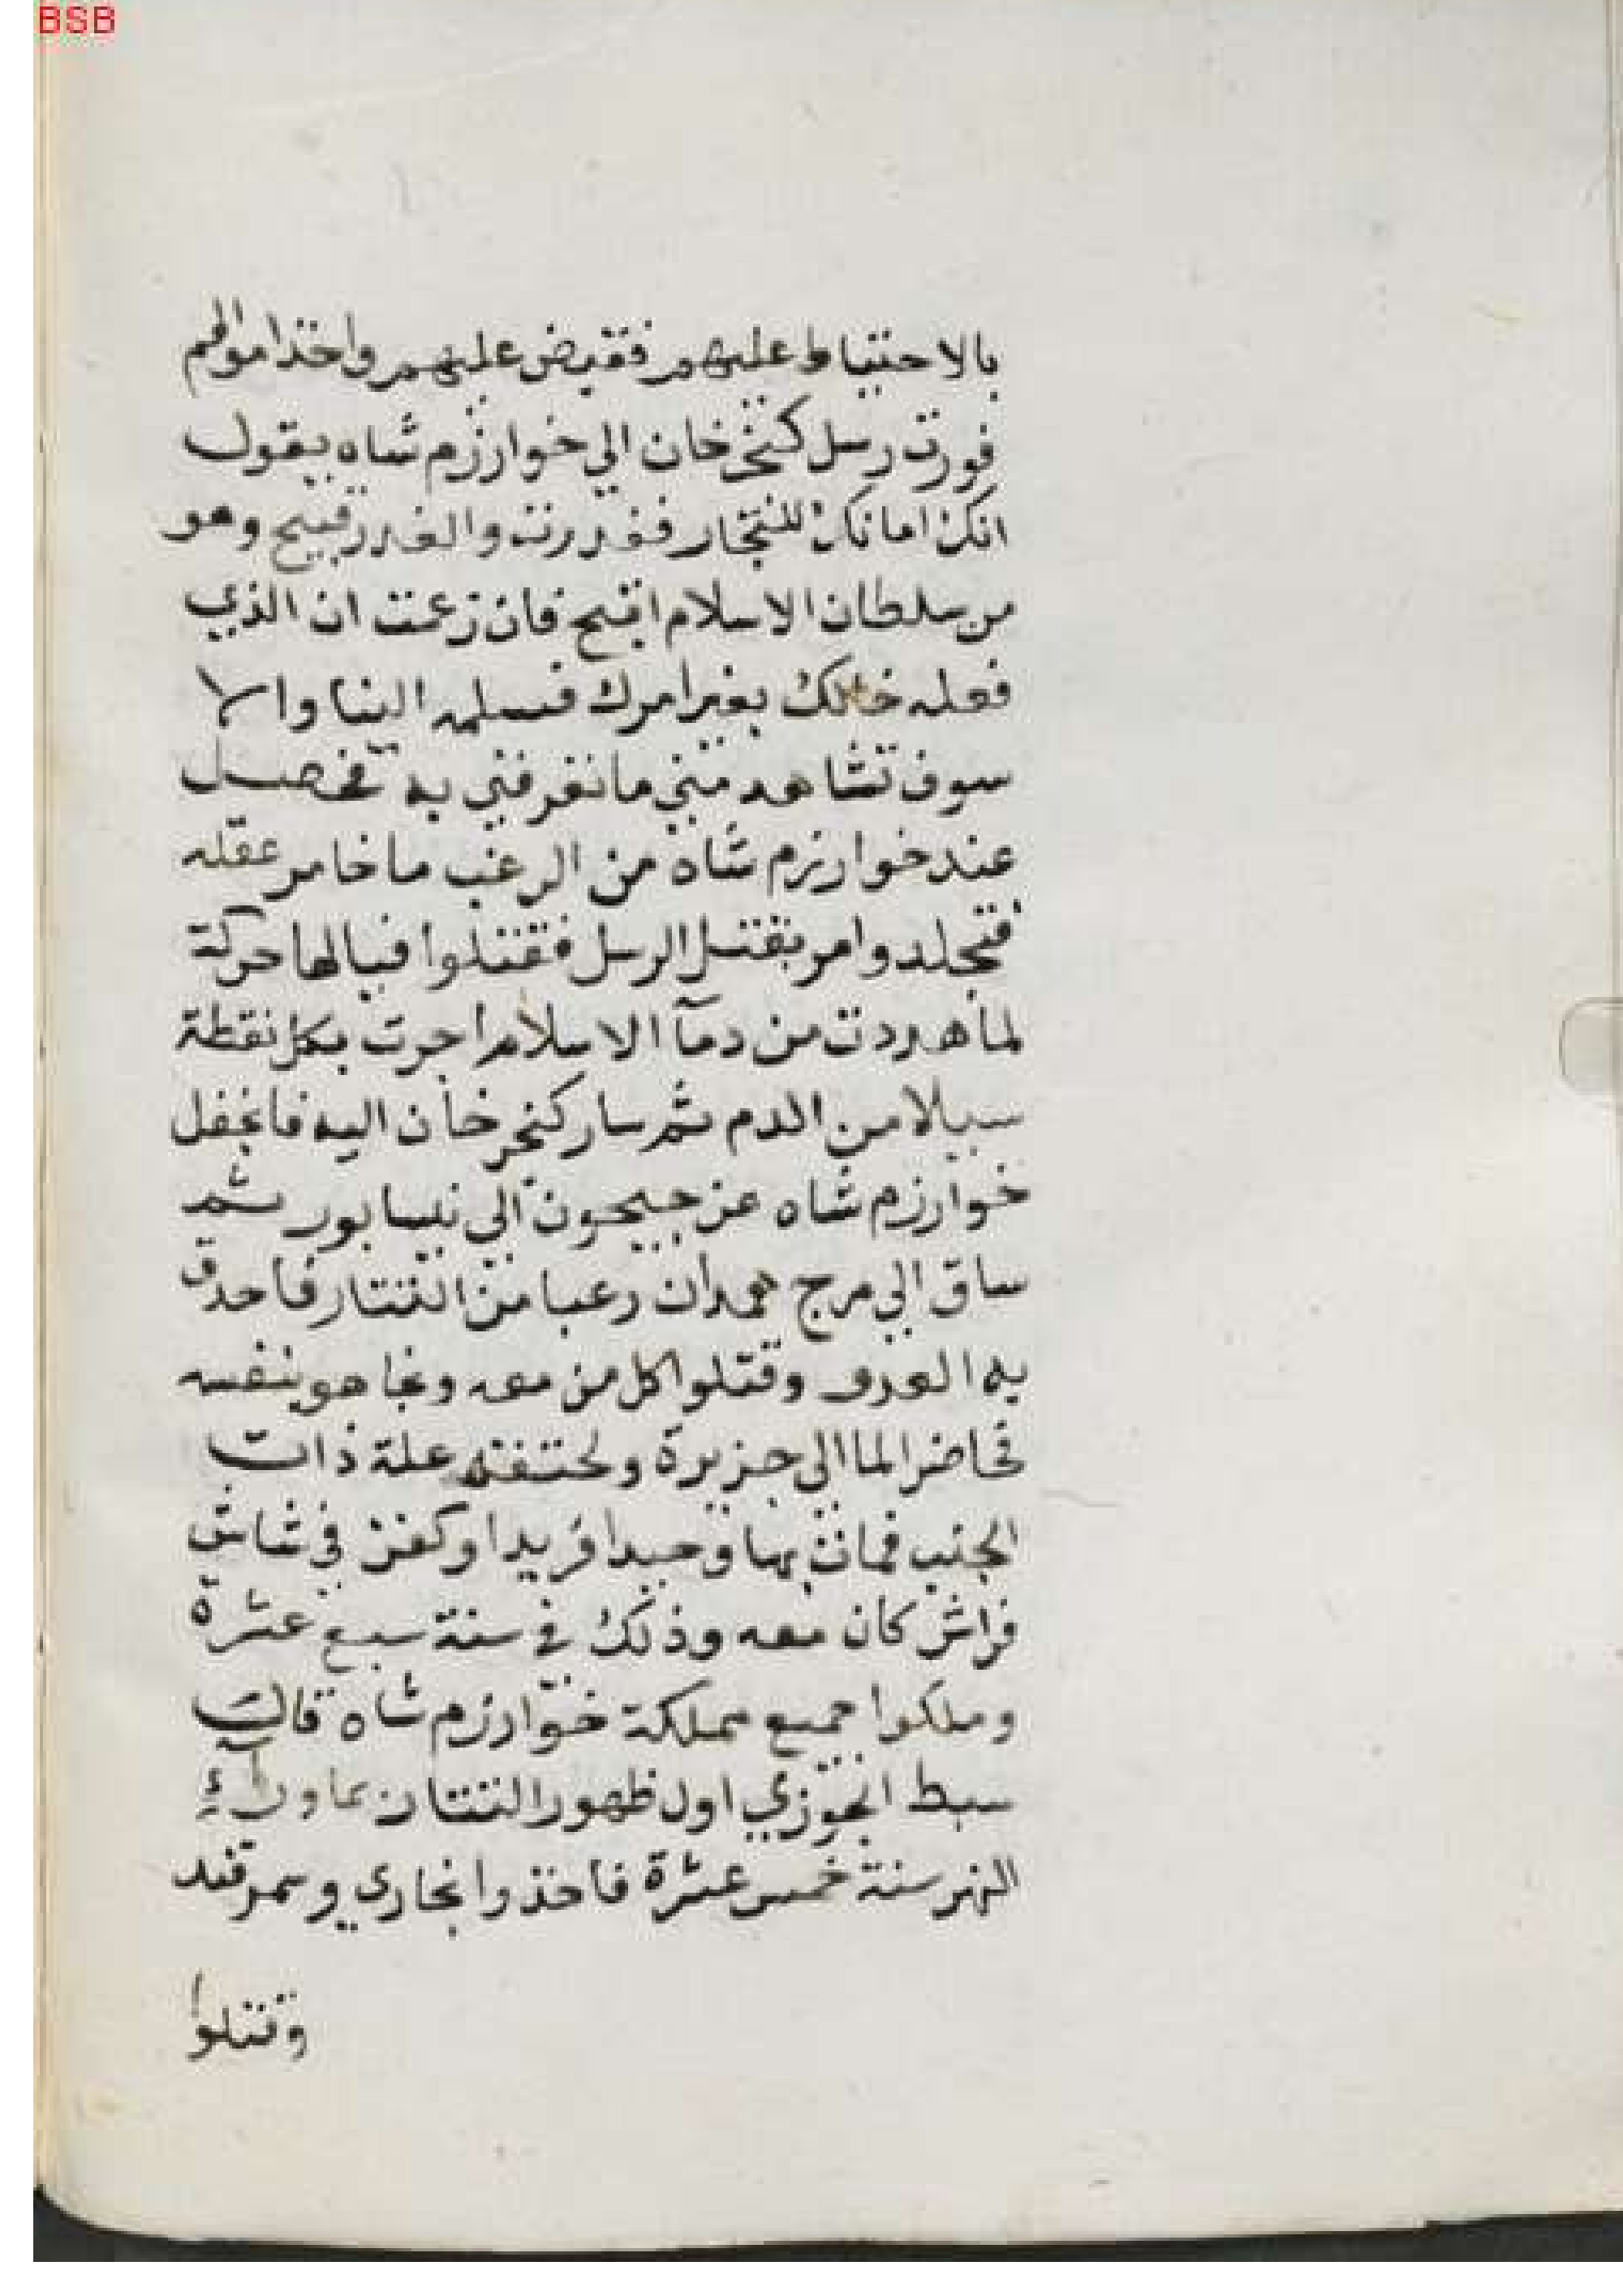 BSB
بالاحتياط عليهم فقبض عليهم واخذ اموالهم
فوردت رسل كنجزخان الي خوارزم شاه يقول
انك امانك للتجار فغدرت والغدر قبيح وهو
من سلطان الاسلام اقبح فان زعمت ان الذي
فعله خالك بغير امرك فسلمه الينا والا
سوف تشاهد مني ما تعرفني به فحصل
عند خوارزم شاه من الرعب ما خامر عقله
فتجلد وامر بقتل الرسل فقتلوا فيالها حركة
لما هدرت من دمآ الاسلام اجرت بكل نقطة
سيلا من الدم ثم سار كنجزخان اليه فانجفل
خوارزم شاه عن جيحون الي نيسابور ثم
ساق الي مرج همدان رعبا من التتار فاحدق
به العدو وقتلوا كل من معه ونجا هو بنفسه
فخاض الما الى جزيرة ولحقته علة ذات
الجنب فمات بها وحيدا فريدا وكفن في شاش
فراش كان معه وذلك في سنة سبع عشرة
وملكوا جميع مملكة خوارزم شاه قال
سبط الجوزي اول ظهور التتار بماورآء
النهر سنة خمس عشرة فاخذوا بخاري وسمرقند
وقتلوا